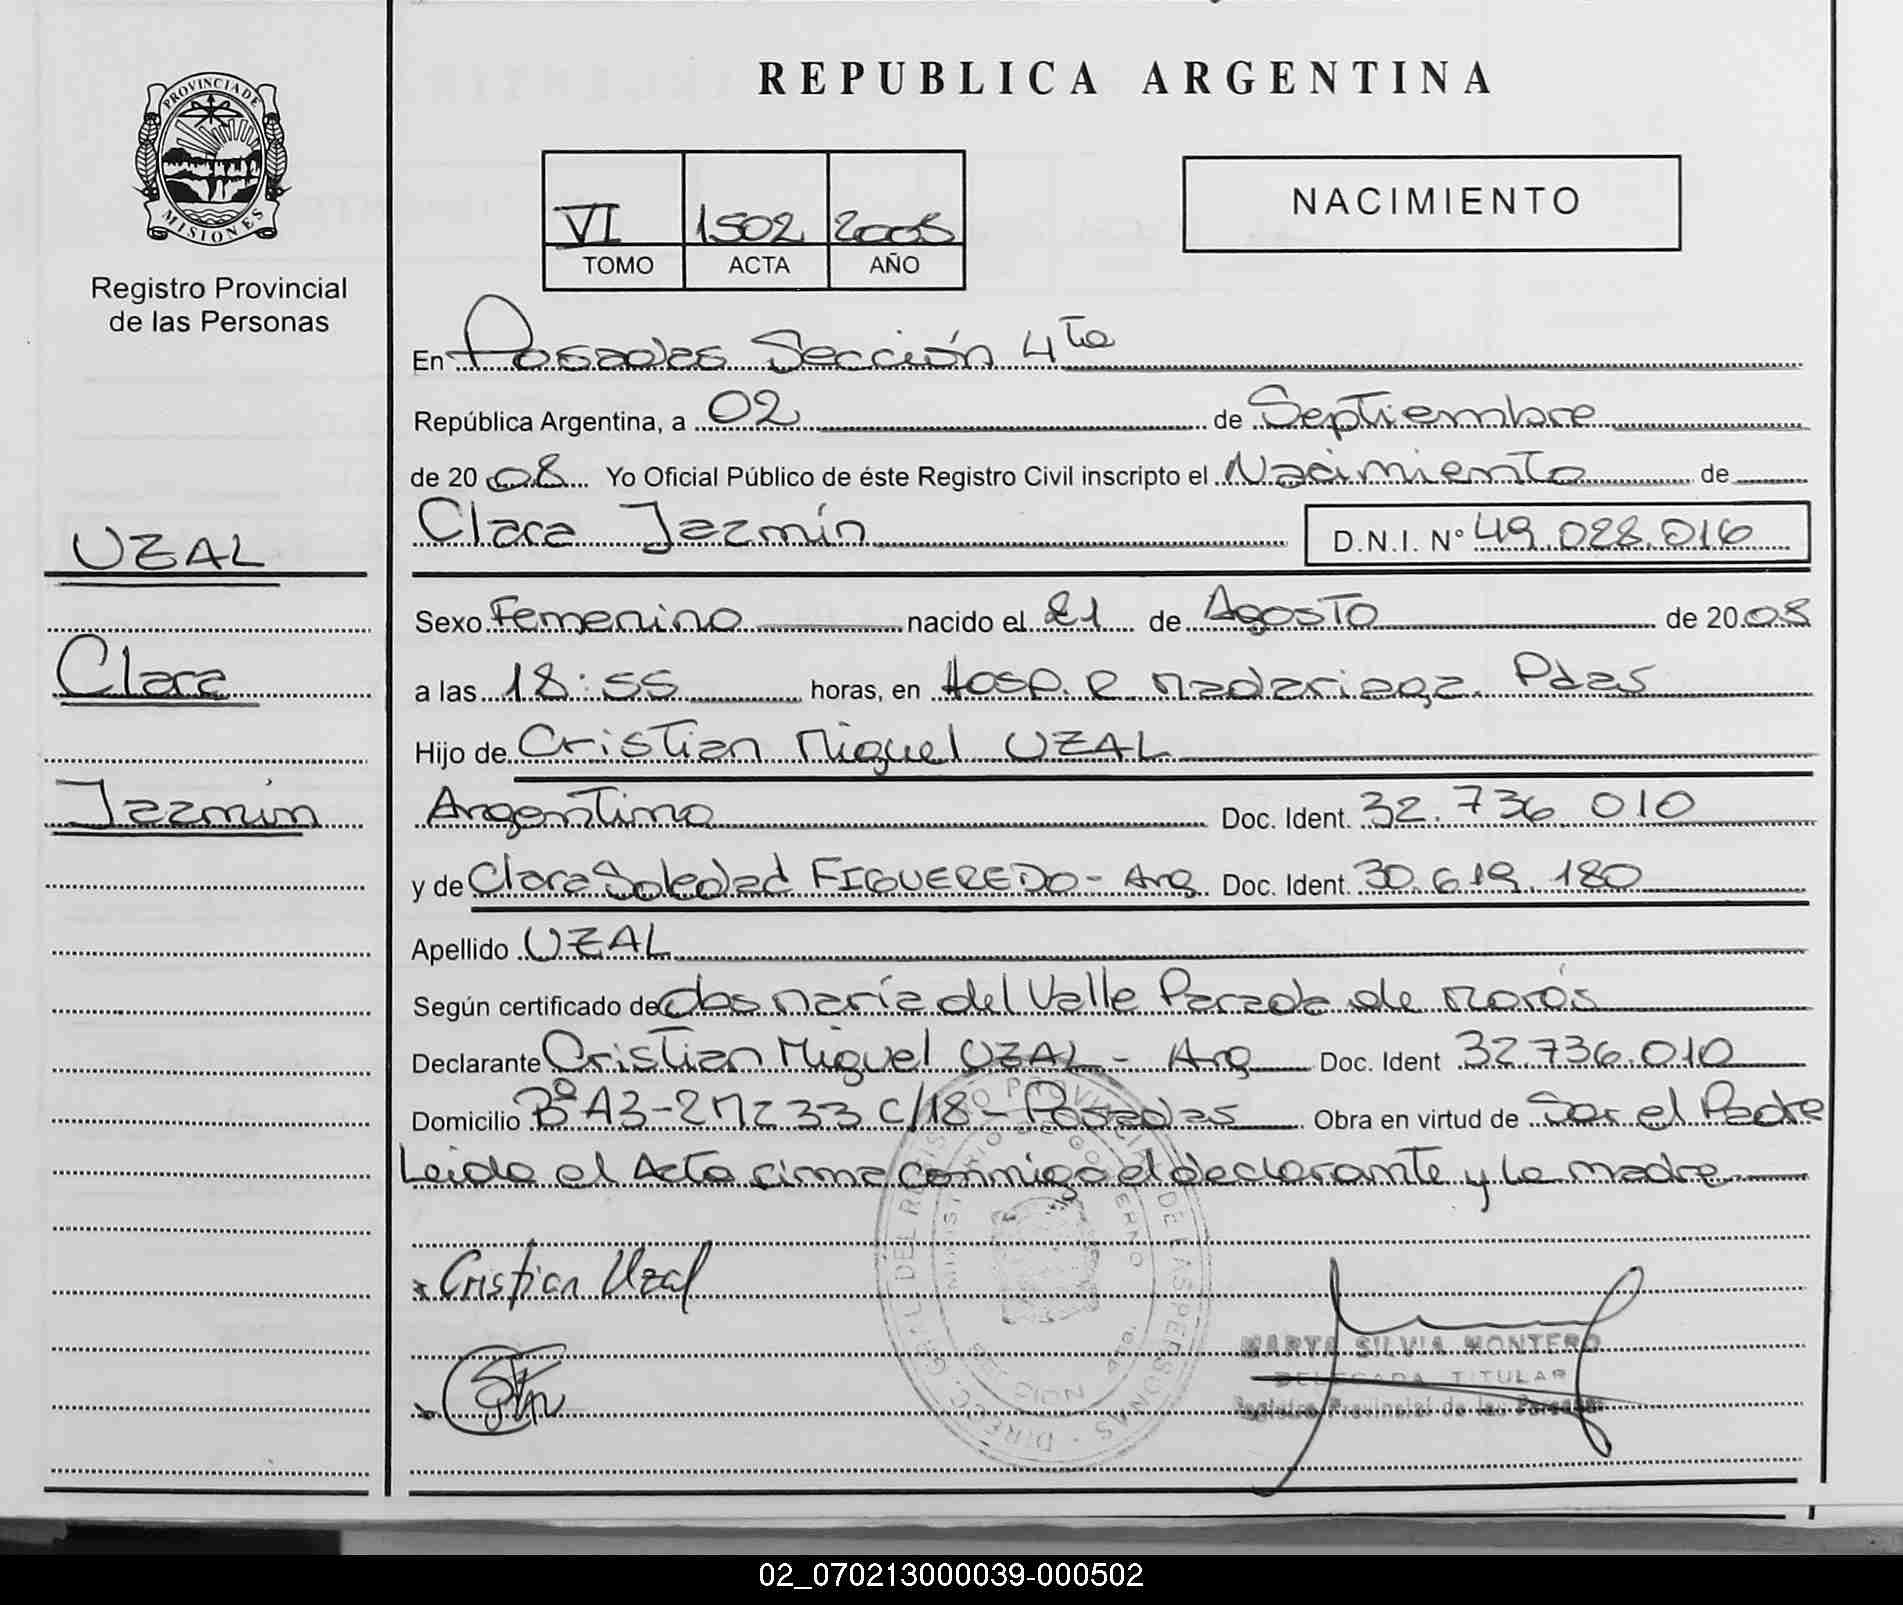 PROVINCIA DE
MISIONES
Registro Provincial
de las Personas
UZAL
Clara
Jazmín
REPUBLICA ARGENTINA
VI 1502 2008
TOMO ACTA AÑO
NACIMIENTO
En Posadas Sección 4ta
República Argentina, a 02 de Septiembre
de 20 08 Yo Oficial Público de éste Registro Civil inscripto el Nacimiento de
Clara Jazmín D.N.I. Nº 49.028.016
Sexo Femenino nacido el 21 de Agosto de 20 08
a las 18:55 horas, en Hosp. R. Madariaga. Pdas
Hijo de Cristian Miguel UZAL
Argentino Doc. Ident. 32.736.010
y de Clara Soledad FIGUEREDO - Arg Doc. Ident. 30.619.180
Apellido UZAL
Según certificado de Obs María del Valle Parada de Morós
Declarante Cristian Miguel UZAL - Arg Doc. Ident 32.736.010
Domicilio Bº A3-2 Mz 33 C/18 - Posadas Obra en virtud de Ser el Padre
Leida el Acta firma conmigo el declarante y la madre
Cristian Uzal
DIREC. GRAL DEL REGISTRO PROVINCIAL DE LAS PERSONAS
MINISTERIO DE GOBIERNO
MARTA SILVIA MONTERO
DELEGADA TITULAR
Registro Provincial de las Personas
02_070213000039-000502